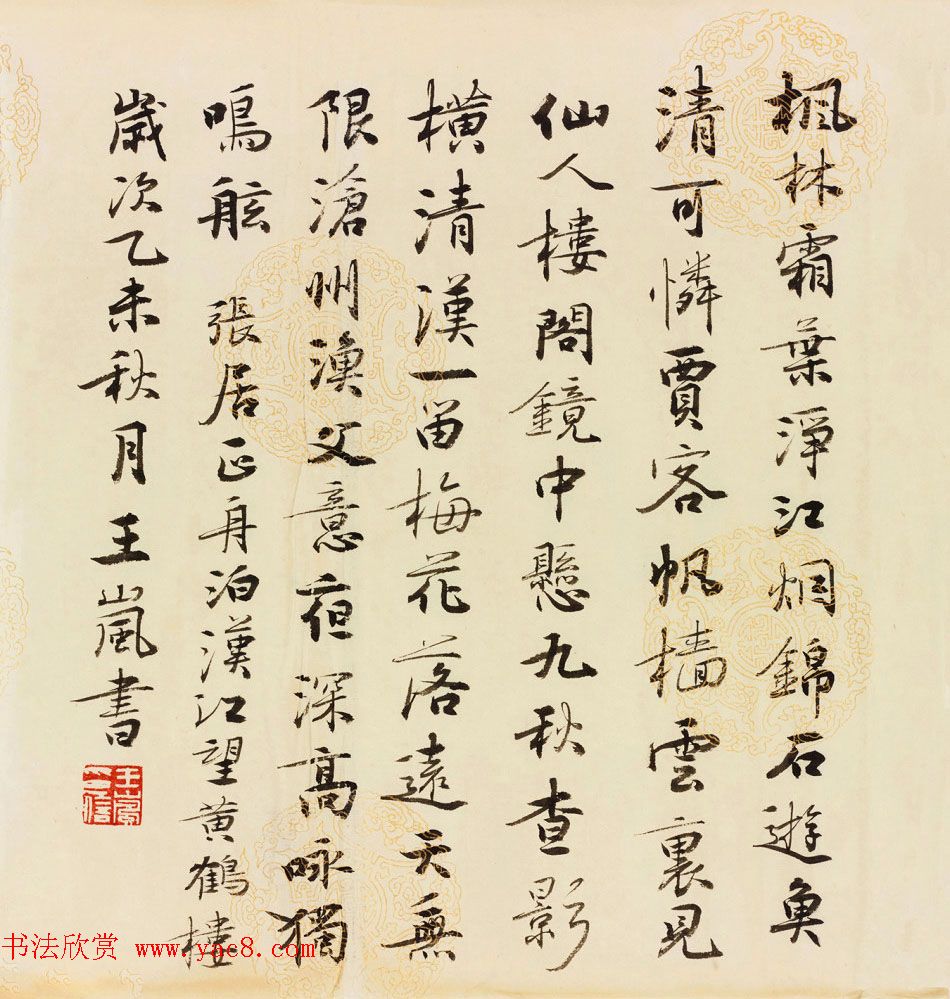 楓林霜葉淨江烟錦石遊魚
清可憐賈客帆樯雲裏見
仙人樓閣鏡中懸九秋查影
橫清漢一笛梅花落遠天無
限滄州漁父意夜深高咏獨
鳴舷 張居正舟泊漢江望黄鶴樓
歲次乙未秋月王嵐書
书法欣赏 www.yac8.com